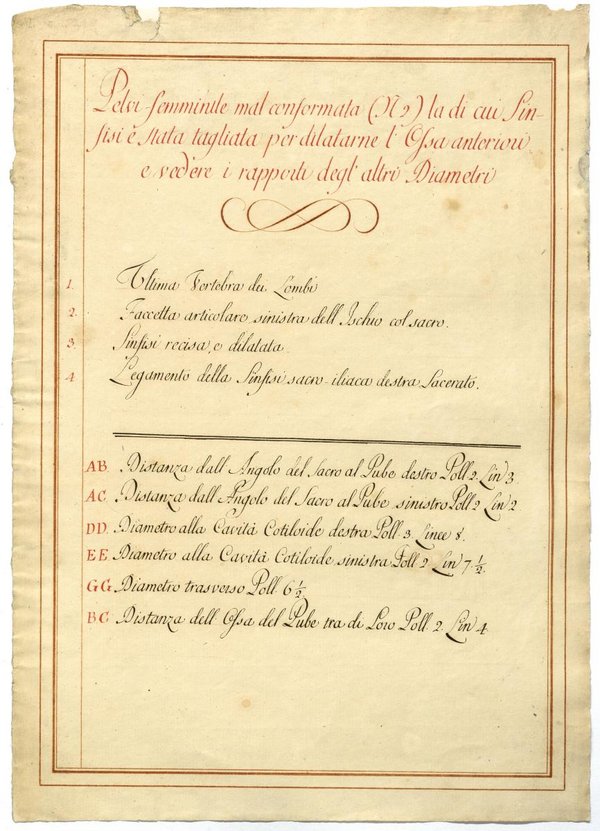 Pelvi femminile mal conformata (N 2) la di cui Sin-
fisi è stata tagliata per dilatarne l'Ossa anteriori
e vedere i rapporti degl'altri Diametri
1. Ultima Vertebra dei Lombi
2. Faccetta articolare sinistra dell'Ischio col sacro.
3. Sinfisi recisa, e dilatata
4. Legamento della Sinfisi sacro-iliaca destra Lacerato.
AB. Distanza dall'Angolo del Sacro al Pube destro Poll. 2. Lin 3.
AC. Distanza dall'Angolo del Sacro al Pube sinistro Poll 2 Lin 2
DD. Diametro alla Cavità Cotiloide destra Poll. 3 Linee 8.
EE. Diametro alla Cavità Cotiloide sinistra Poll 2 Lin 7 1/2.
GG. Diametro trasverso Poll. 6 1/2
BC. Distanza dell'Ossa del Pube tra di Loro Poll. 2. Lin 4.